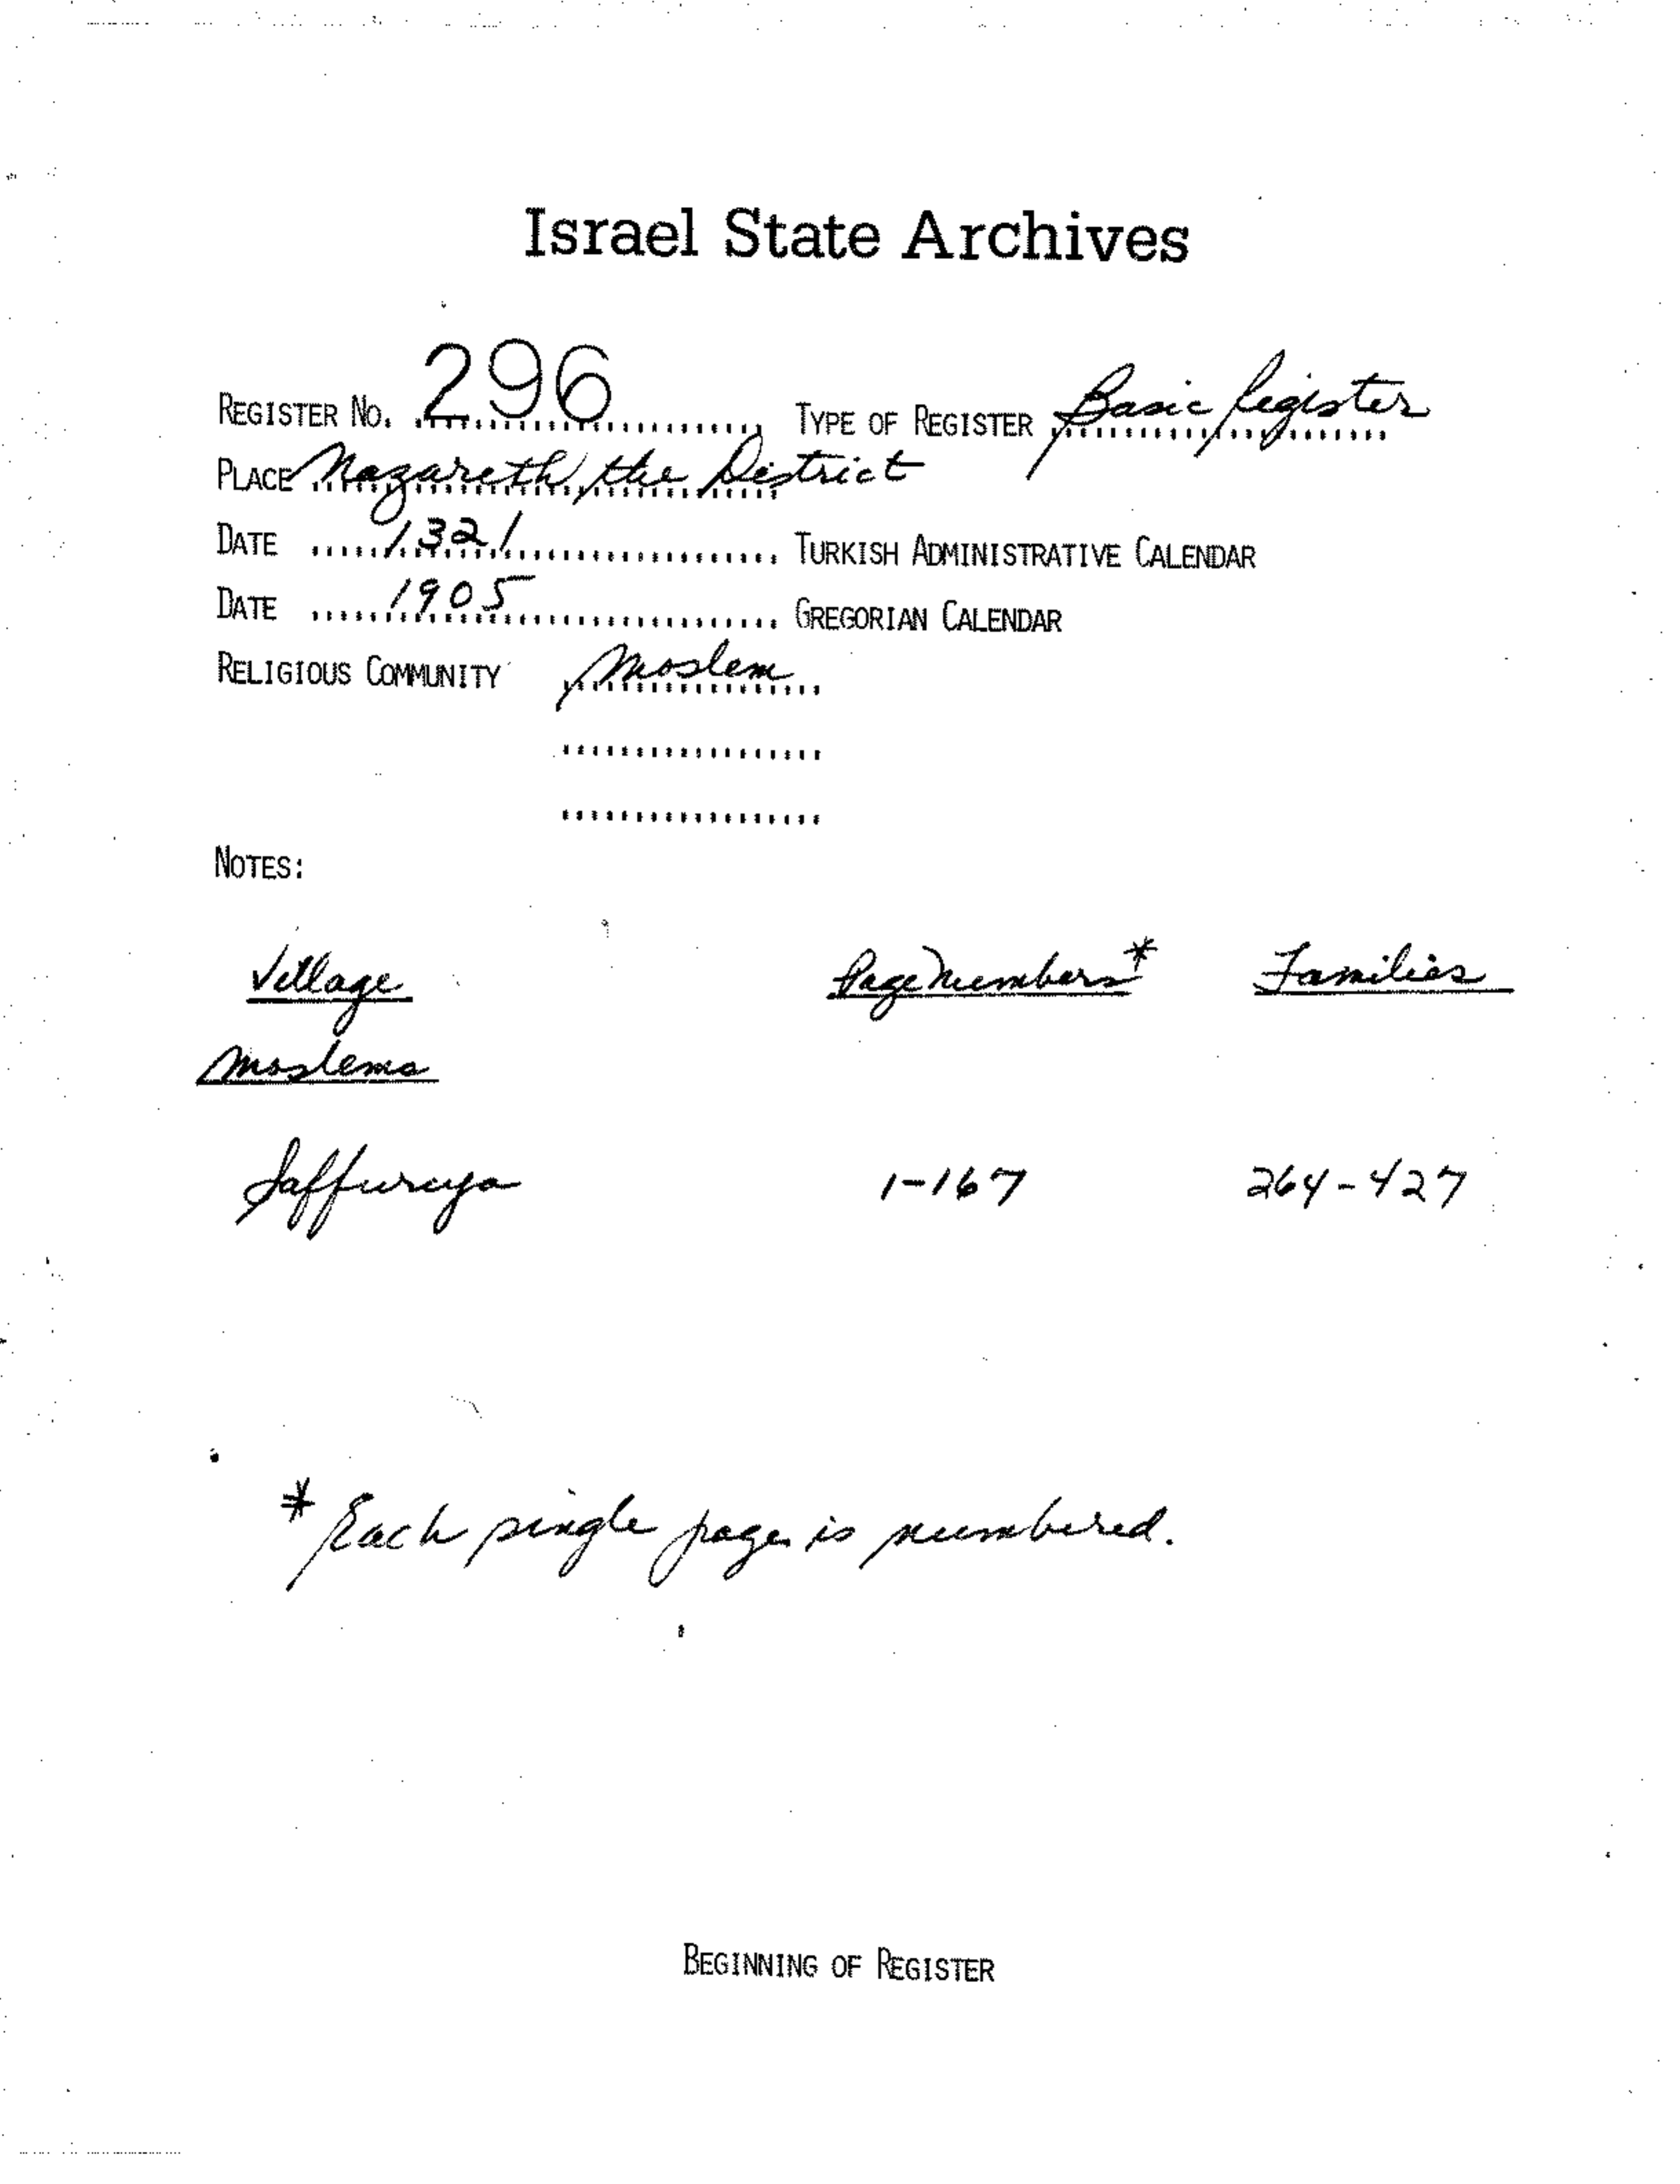 Israel State Archives
REGISTER No. 296 TYPE OF REGISTER Basic Register
PLACE Nazareth, the District
DATE 1321 TURKISH ADMINISTRATIVE CALENDAR
DATE 1905 GREGORIAN CALENDAR
RELIGIOUS COMMUNITY Moslem
NOTES:
Village Page Numbers* Families
Moslems
Saffuruya 1-167 264-427
* Each single page is numbered.
BEGINNING OF REGISTER